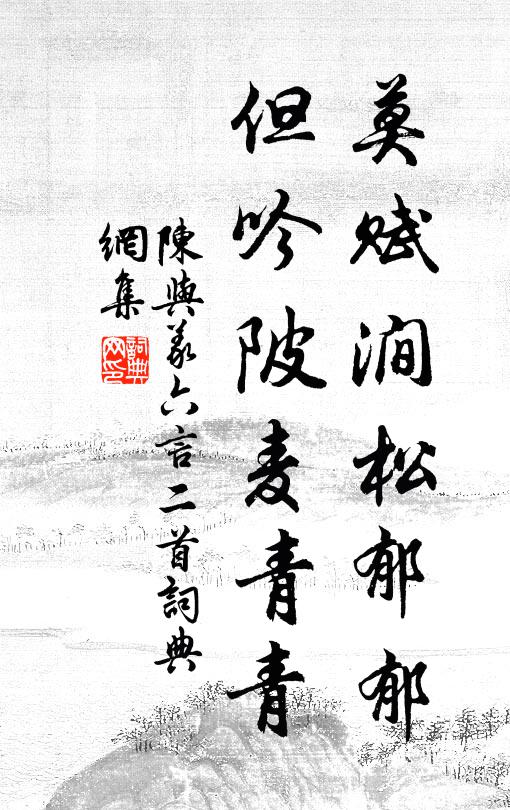 莫赋澗松郁郁
但吟陂麦青青
陳與義六言二首詞典
網集
詞典网印